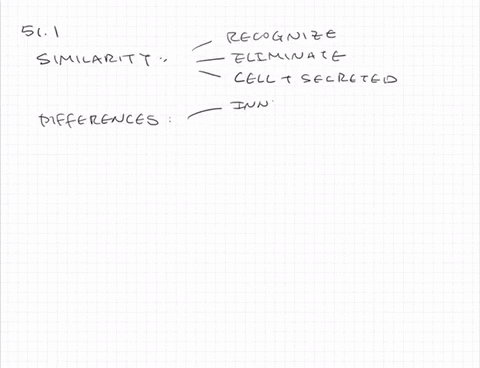 51.1
RECOGNIZE
SIMILARITY:
ELIMINATE
CELL + SECRETED
INN
DIFFERENCES: